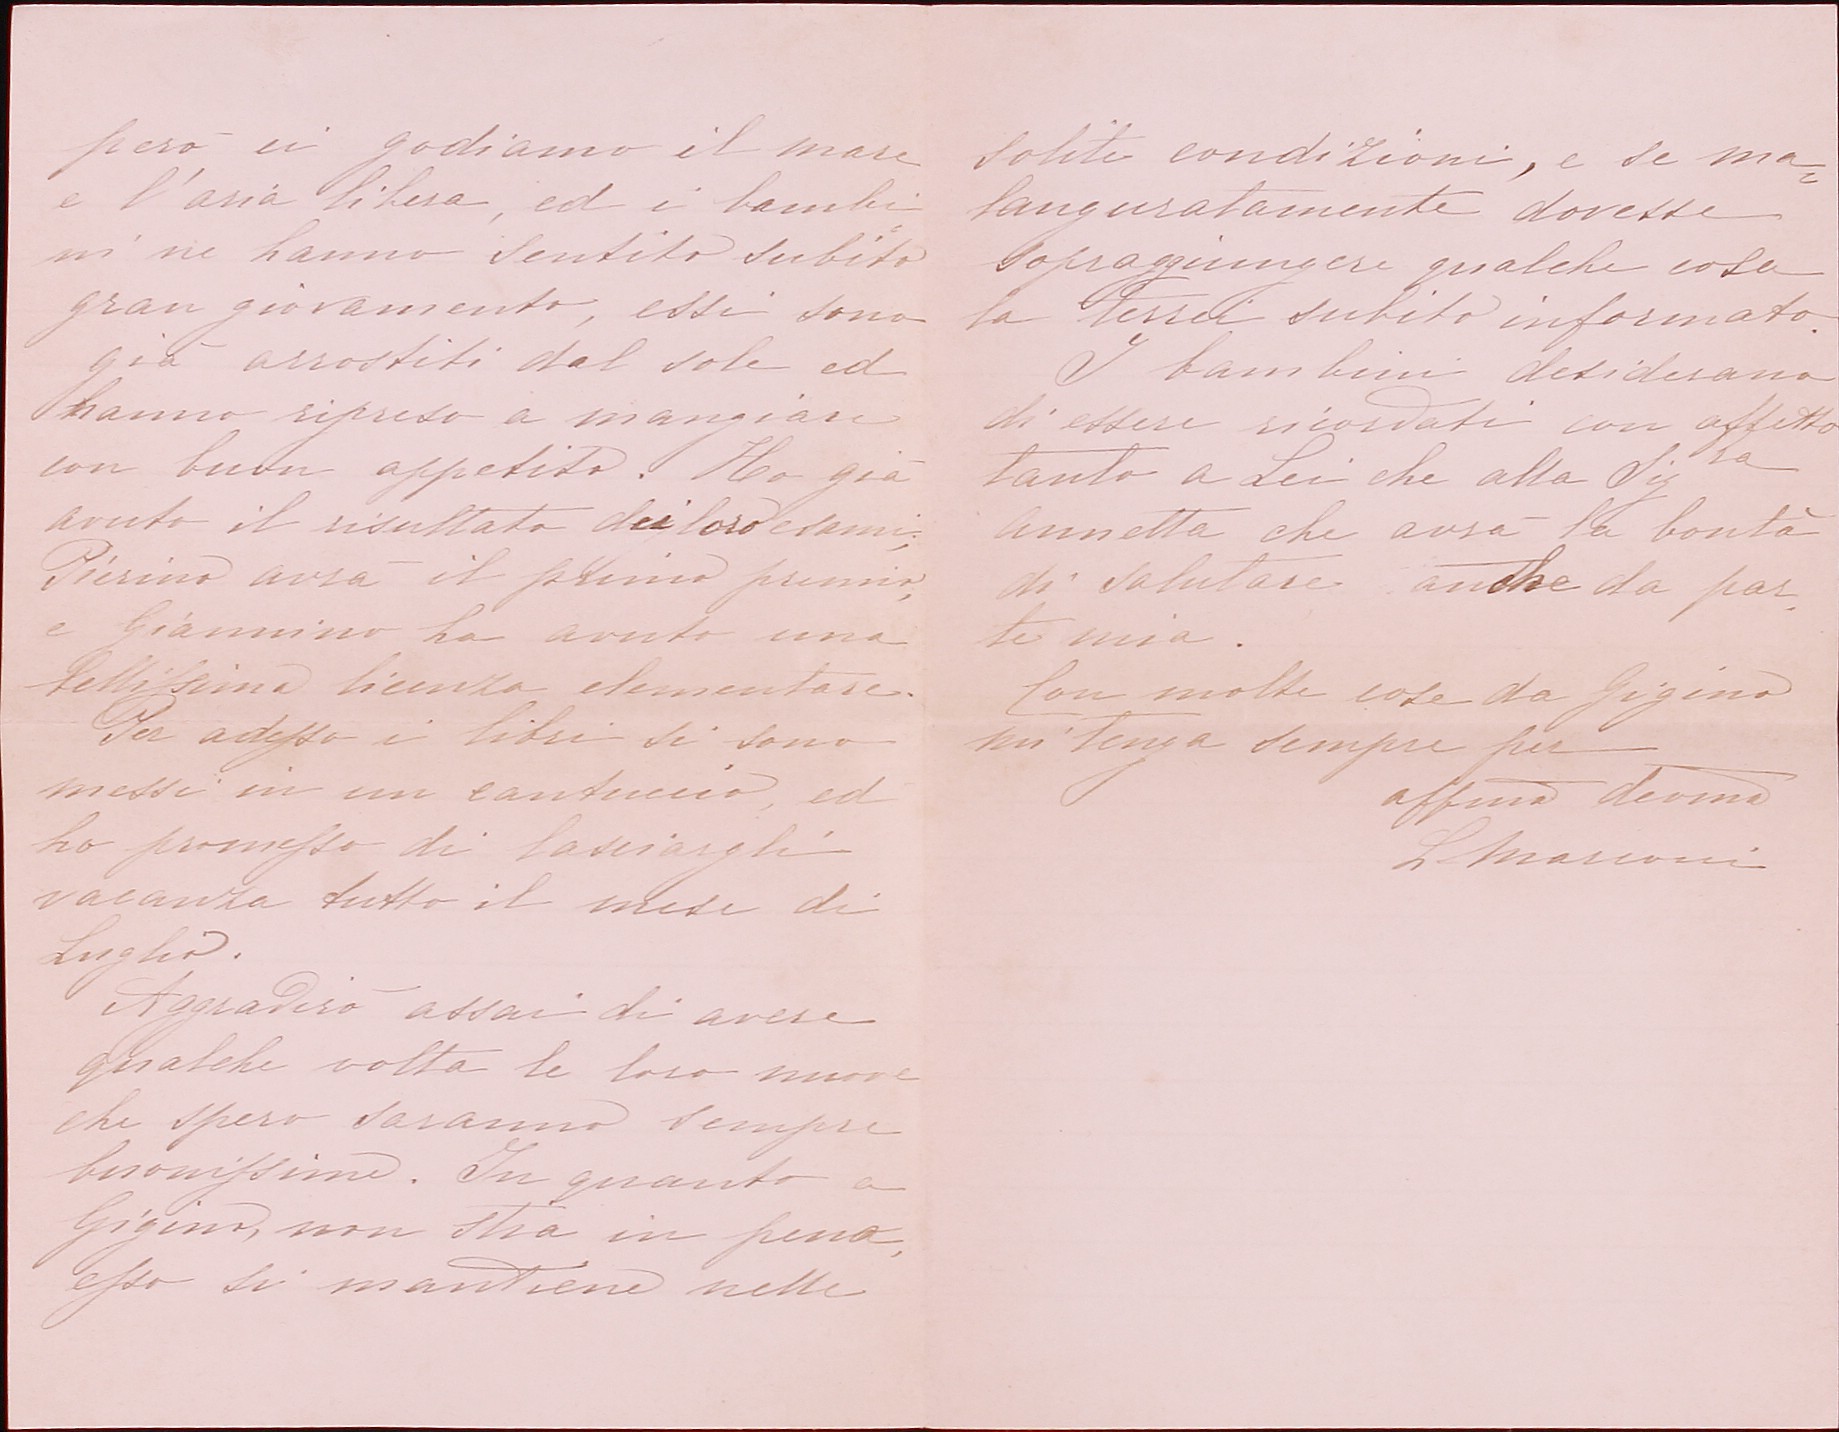 però ci godiamo il mare
e l'aria libera, ed i bambi
ni ne hanno sentito subito
gran giovamento, essi sono
già arrostiti dal sole ed
hanno ripreso a mangiare
con buon appetito. Ho già
avuto il risultato dei loro esami;
Pierino avrà il primo premio,
e Giannino ha avuto una
bellissima licenza elementare.
Per adesso i libri si sono
messi in un cantuccio, ed
ho promesso di lasciargli
vacanza tutto il mese di
Luglio.
Aggradirò assai di avere
qualche volta le loro nuove
che spero saranno sempre
buonissime. In quanto a
Gigino, non stia in pena,
esso si mantiene nelle
solite condizioni, e se ma=
lauguratamente dovesse
sopraggiungere qualche cosa
la terrei subito informato.
I bambini desiderano
di essere ricordati con affetto
tanto a Lei che alla Sigra
Annetta che avrà la bontà
di salutare anche da par
te mia.
Con molte cose da Gigino
mi tenga sempre per
affma devma
L Marconi